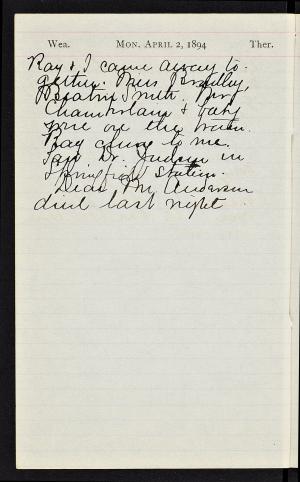 Wea. MON. APRIL 2, 1894 Ther.
Ray & I came away to-
gether. Miss Bradley,
Beatrix Smith. Mrs
Chamberlain & baby
were on the train.
Ray came to me.
Saw Dr. Judson in
Springfield Station.
Dear Mr Anderson
died last night